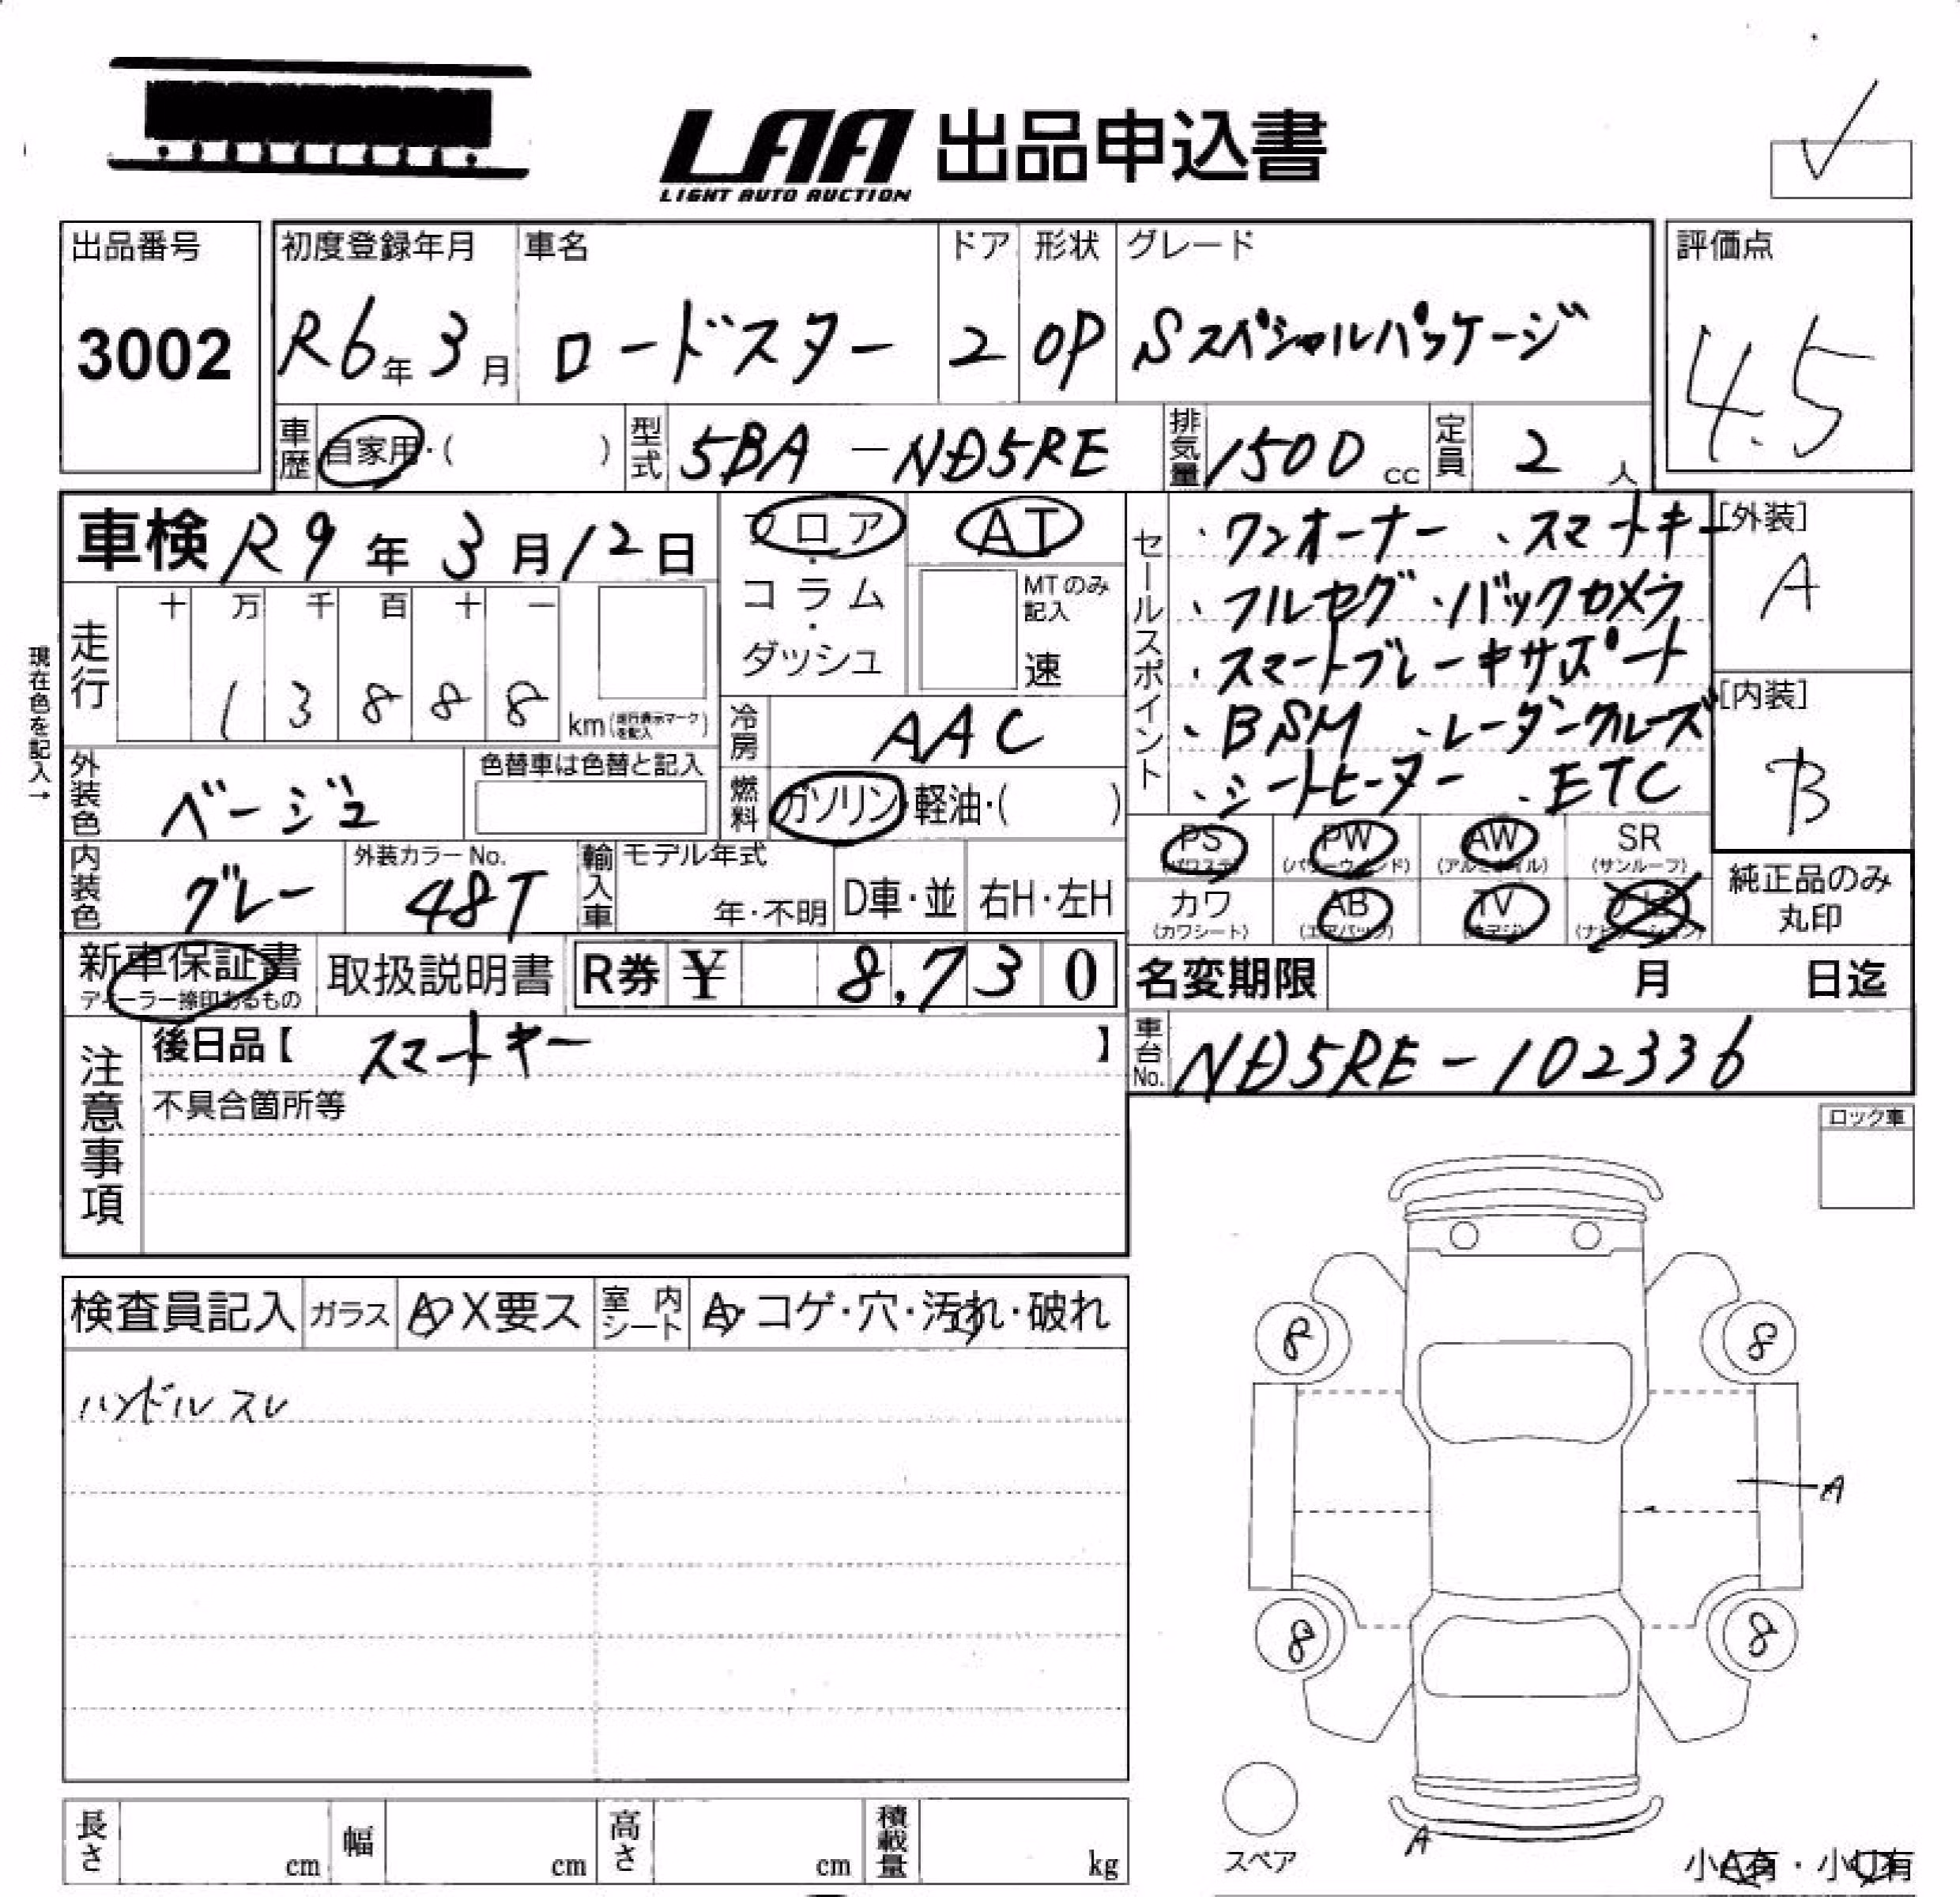 LAA 出品申込書
LIGHT AUTO AUCTION
出品番号
3002
初度登録年月
R6年3月
車名
ロードスター
ドア
2
形状
OP
グレード
Sスペシャルパッケージ
評価点
4.5
車歴 自家用・( )
型式 5BA-ND5RE
排気量 1500 cc
定員 2 人
車検 R9年3月12日
フロア・コラム・ダッシュ
AT
MTのみ記入
速
走行
十 万 千 百 十 一
1 3 8 8 8 km
現在色を記入→
冷房 AAC
燃料 ガソリン・軽油・( )
外装色 ベージュ
色替車は色替と記入
内装色 グレー
外装カラーNo. 48T
輸入車
モデル年式
年・不明
D車・並
右H・左H
セールスポイント
・ワンオーナー ・スマートキー
・フルセグ ・バックカメラ
・スマートブレーキサポート
・BSM ・レーダークルーズ
・シートヒーター ・ETC
[外装]
A
[内装]
B
PS PW AW SR
(パワステ) (パワーウィンド) (アルミホイル) (サンルーフ)
カワ AB TV
(カワシート) (エアバック)
純正品のみ丸印
新車保証書
ディーラー捺印あるもの
取扱説明書
R券 ¥ 8,730
名変期限 月 日迄
車台No. ND5RE-102336
注意事項
後日品【 スマートキー 】
不具合箇所等
ロック車
検査員記入 ガラス A・X要ス 室内シート A・コゲ・穴・汚れ・破れ
ハンドルスレ
8 8
A
8 8
A
スペア
小A有・小U有
長さ cm 幅 cm 高さ cm 積載量 kg